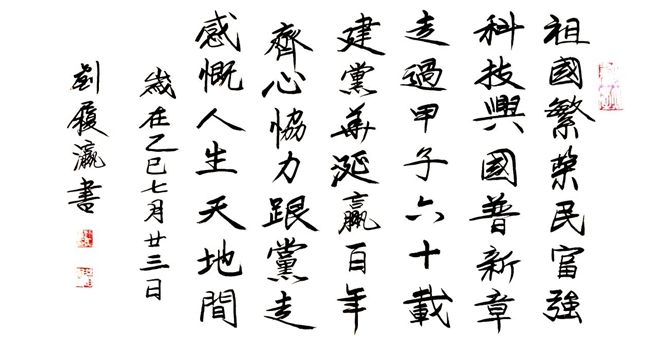 祖國繁榮民富強
科技興國普新章
走過甲子六十載
建黨華誕贏百年
齊心恊力跟黨走
感慨人生天地間
歲在乙巳七月廿三日
劉履瀛書